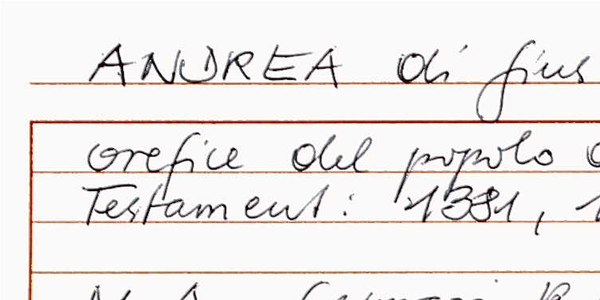 ANDREA di
orefice del popolo
Testament: 1381,